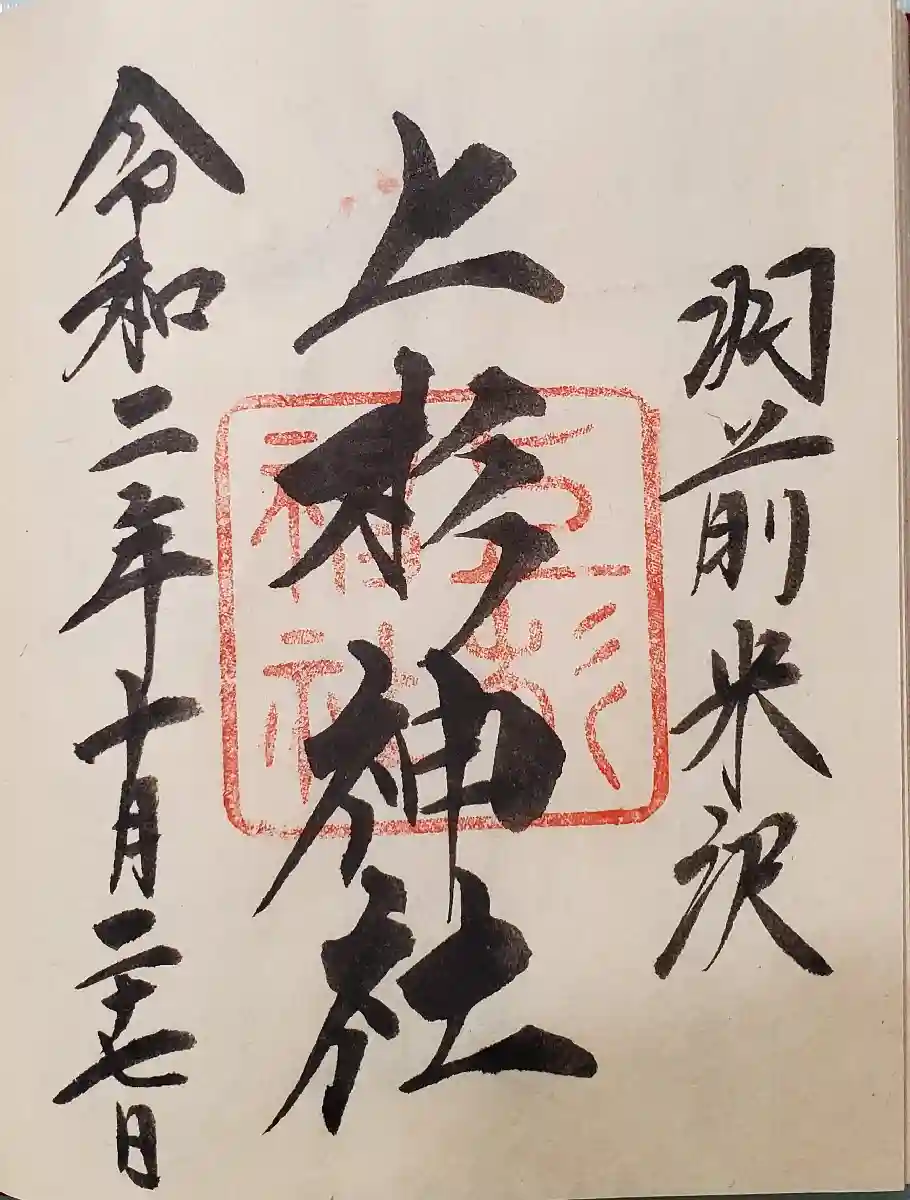 羽前米沢
上杉神社
令和二年十月二十七日